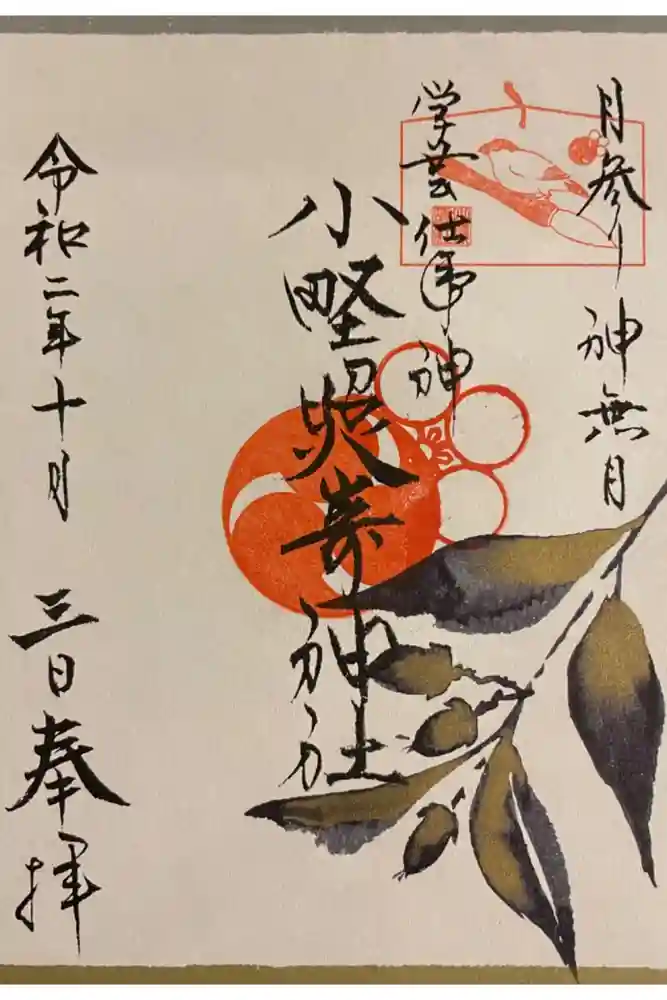 月参り 神無月
学芸仕事神
小野照崎神社
令和二年十月 三日 奉拝